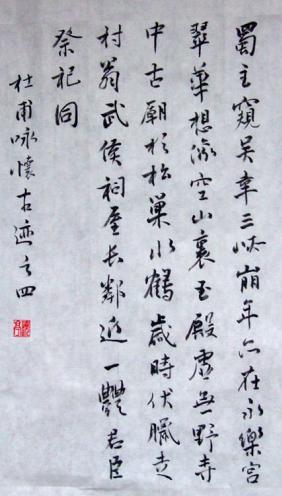 蜀主窺吳幸三峽崩年亦在永樂宮
翠華想像空山裏玉殿虛無野寺
中古廟杉松巢水鶴歲時伏臘走
村翁武侯祠屋长鄰近一體君臣
祭祀同
杜甫咏懷古迹之四